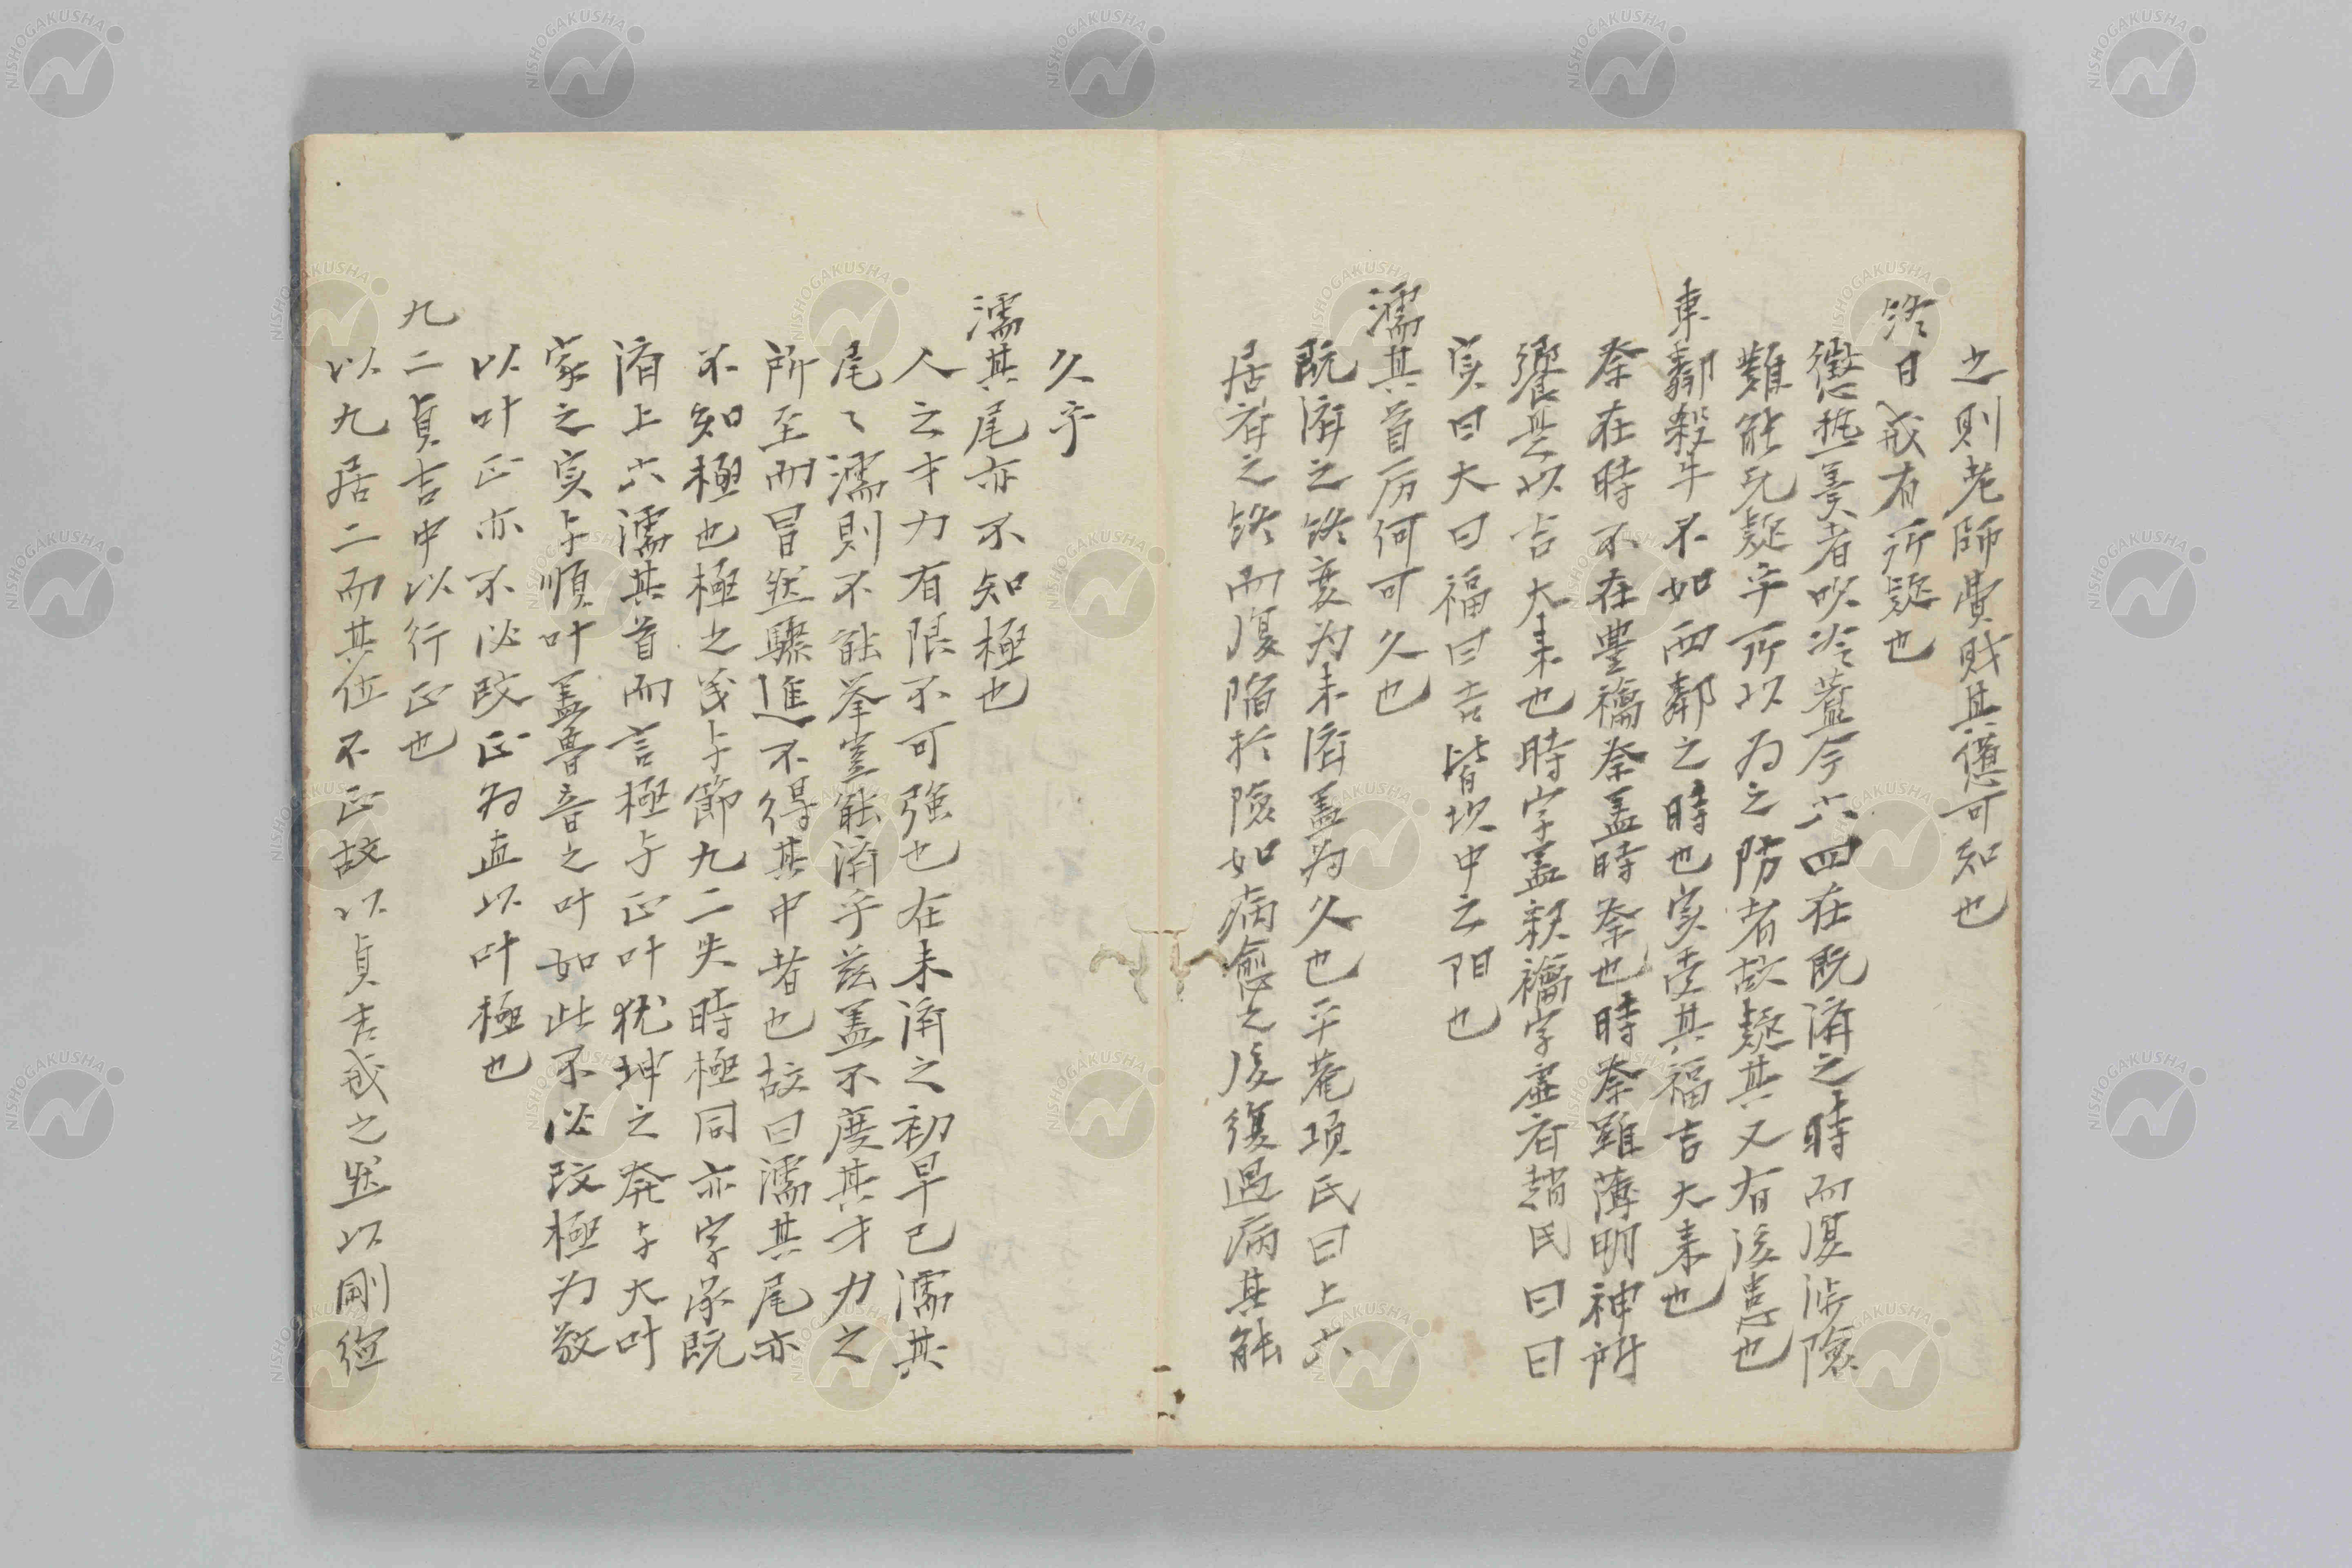 之則老師費財其憊可知也
終日戒有所疑也
懲熱羹者吹冷虀今六四在既濟之時而復涉險
難能無疑乎所以為之防者故疑其又有後患也
東鄰殺牛不如西鄰之時也实受其福吉大来也
祭在時不在豊禴祭盖時祭也時祭雖薄明神所
饗是以吉大来也時字盖親禴字虛者趙氏曰曰
实曰大曰福曰吉皆坎中之阳也
濡其首厉何可久也
既濟之終变为未濟盖为久也平菴項氏曰上六
居濟之終而復陥於險如病愈之後復遇病其能
久乎
濡其尾亦不知極也
人之才力有限不可強也在未濟之初早已濡其
尾〻濡則不能挙豈能濟乎茲盖不度其才力之
所至而冒然驟進不得其中者也故曰濡其尾亦
不知極也極之义与節九二失時極同亦字承既
濟上六濡其首而言極与正叶犹坤之発与大叶
家之实与順叶盖魯音之叶如此不必改極为敬
以叶正亦不必改正为直以叶極也
九二貞吉中以行正也
以九居二而其位不正故以貞吉戒之然以剛